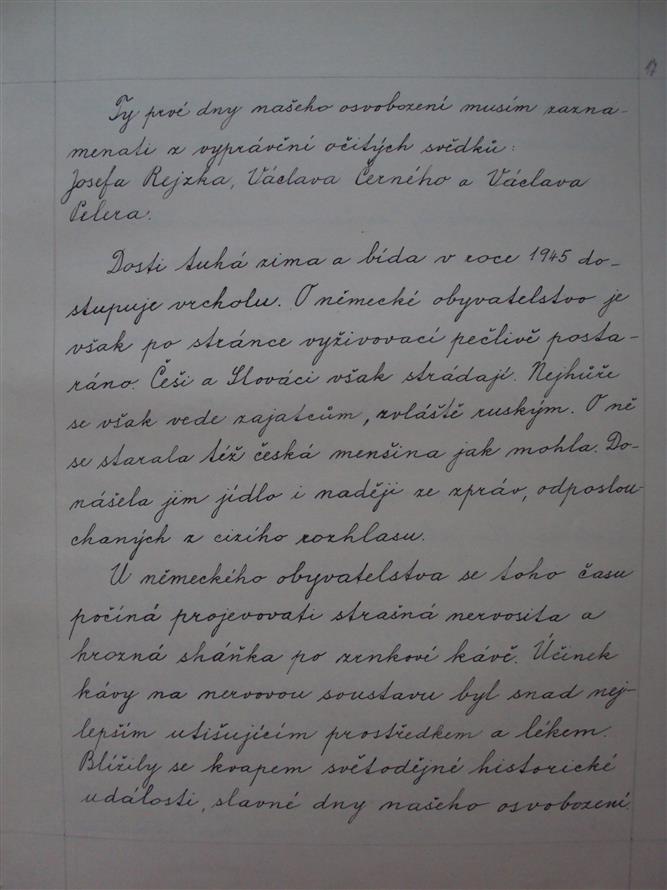 17
Ty prvé dny našeho osvobození musím zazna-
menati z vyprávění očitých svědků:
Josefa Rejzka, Václava Černého a Václava
Pelera.
Dosti tuhá zima a bída v roce 1945 do-
stupuje vrcholu. O německé obyvatelstvo je
však po stránce vyživovací pečlivě posta-
ráno. Češi a Slováci však strádají. Nejhůře
se však vede zajatcům, zvláště ruským. O ně
se starala též česká menšina jak mohla. Do-
nášela jim jídlo i naději ze zpráv, odposlou-
chaných z cizího rozhlasu.
U německého obyvatelstva se toho času
počíná projevovati strašná nervosita a
hrozná sháňka po zrnkové kávě. Účinek
kávy na nervovou soustavu byl snad nej-
lepším utišujícím prostředkem a lékem.
Blížily se kvapem světodějné historické
události, slavné dny našeho osvobození.